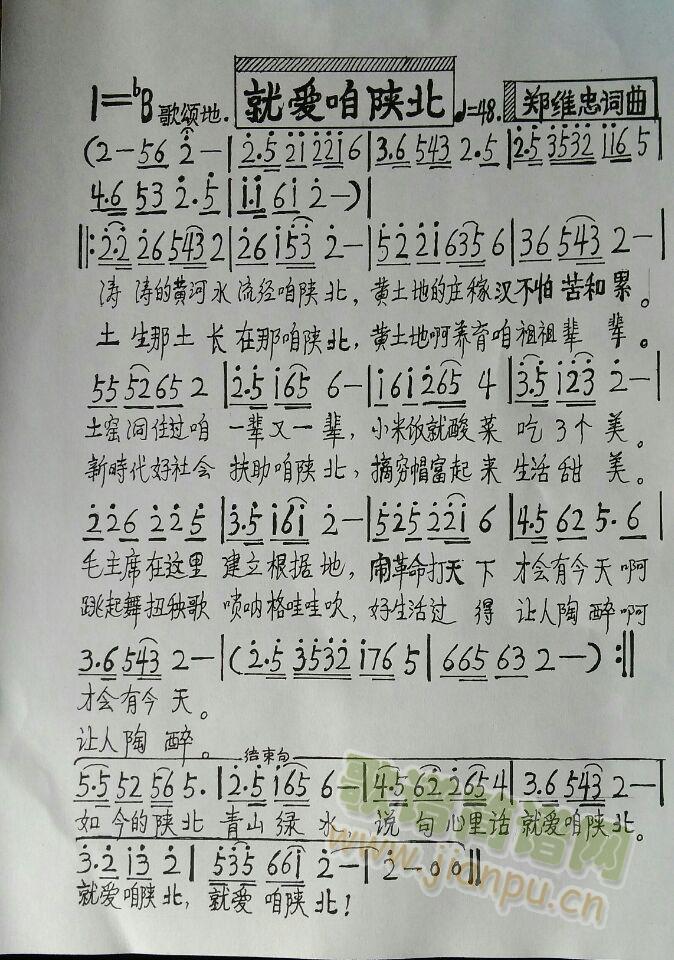 1=♭B 歌颂地. 就爱咱陕北 ♩=48. 郑维忠词曲
(2— 56 2— | 2·5 21 2216 | 3·6 543 2·5 | 2·5 3532 116 5
4·6 53 2·5 | 1·1 61 2—) |
‖: 2·2 26 543 2 | 26 153 2— | 52 21 635 6 | 36 543 2— |
涛 涛的黄河水 流经咱陕北, 黄土地的庄稼汉不怕苦和累。
土 生那土长 在那咱陕北, 黄土地啊养育咱祖祖辈 辈。
55 5265 2 | 2·5 165 6— | 161 265 4 | 3·5 123 2— |
土窑洞住过咱 一辈又一辈, 小米饭就酸菜 吃3个美。
新時代好社会 扶助咱陕北, 摘穷帽富起来 生活甜 美。
226 225 | 3·5 161 2— | 525 221 6 | 4·5 62 5·6 |
毛主席在这里 建立根据地, 闹革命打天下 才会有今天啊
跳起舞扭秧歌 唢呐格哇哇吹, 好生活过 得 让人陶醉啊
3·6 543 2— | (2·5 3532 176 5 | 665 63 2—) :‖
才会有今 天。
让人陶 醉。
结束句
5·5 52 56 5· | 2·5 165 6— | 4·5 62 265 4 | 3·6 543 2— |
如 今的陕北 青山绿水 说句心里话 就爱咱陕北。
3·2 13 2 | 535 661 2— | 2—00 ‖
就爱咱陕北, 就爱 咱陕北!
歌谱简谱网
www.jianpu.cn